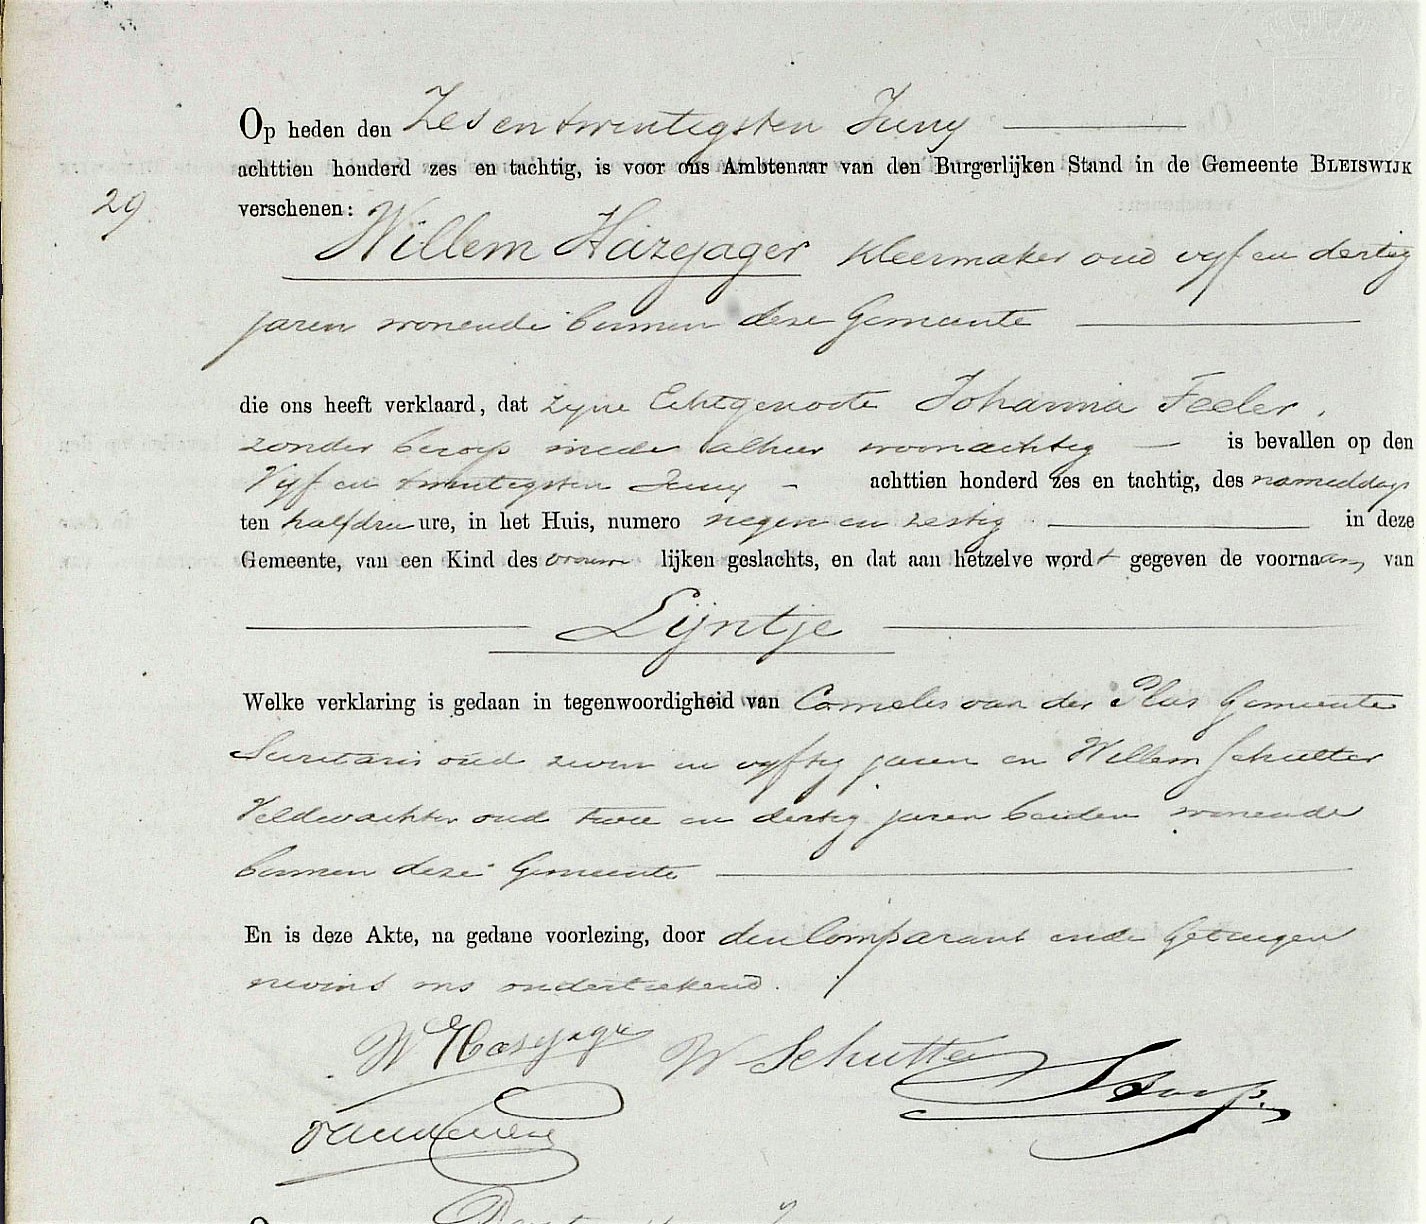 Op heden den Zes en twintigsten Juny
achttien honderd zes en tachtig, is voor ons Ambtenaar van den Burgerlijken Stand in de Gemeente BLEISWIJK
29 verschenen:
Willem Hazejager Kleermaker oud vyf en dertig
jaren wonende binnen deze Gemeente
die ons heeft verklaard, dat zyne Echtgenoote Johanna Feeler,
zonder beroep mede alhier woonachtig is bevallen op den
Vyf en twintigsten Juny achttien honderd zes en tachtig, des namiddags
ten half drie ure, in het Huis, numero negen en zestig in deze
Gemeente, van een Kind des vrouw lijken geslachts, en dat aan hetzelve wordt gegeven de voornaam, van
Lijntje
Welke verklaring is gedaan in tegenwoordigheid van Cornelis van der Gemeente
Secretaris oud zeven en vyftig jaren en Willem Schutter
Veldwachter oud twee en dertig jaren beiden wonende
binnen deze Gemeente
En is deze Akte, na gedane voorlezing, door den Comparant en de Getuigen
nevens ons onderteekend.
W Hasejager W Schutter